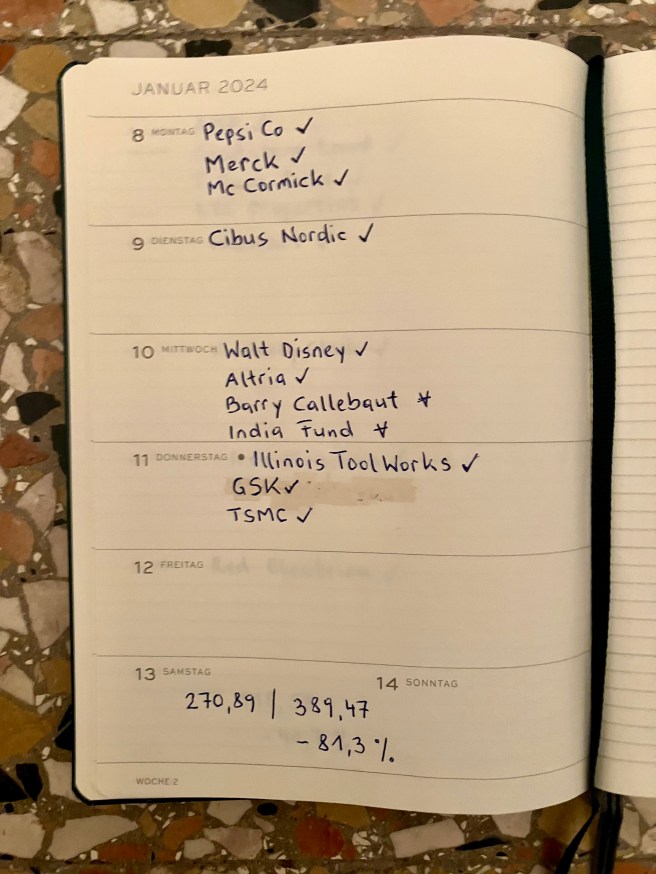 JANUAR 2024
8 MONTAG Pepsi Co ✓
Merck ✓
Mc Cormick ✓
9 DIENSTAG Cibus Nordic ✓
10 MITTWOCH Walt Disney ✓
Altria ✓
Barry Callebaut
India Fund
11 DONNERSTAG • Illinois Tool Works ✓
GSK ✓
TSMC ✓
12 FREITAG
13 SAMSTAG
14 SONNTAG
270,89 | 389,47
- 81,3 %.
WOCHE 2